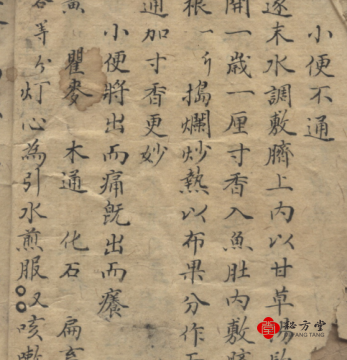 小便不通
遂末水調敷臍上內以甘草湯
開一歲一厘寸香入魚肚內敷臍
根一斤搗爛炒熱以布果分作
通加寸香更妙
小便將出而痛既出而癢
瞿麥 木通 化石 扁
各等分灯心為引水煎服又咳嗽
秘方堂
FANG TANG